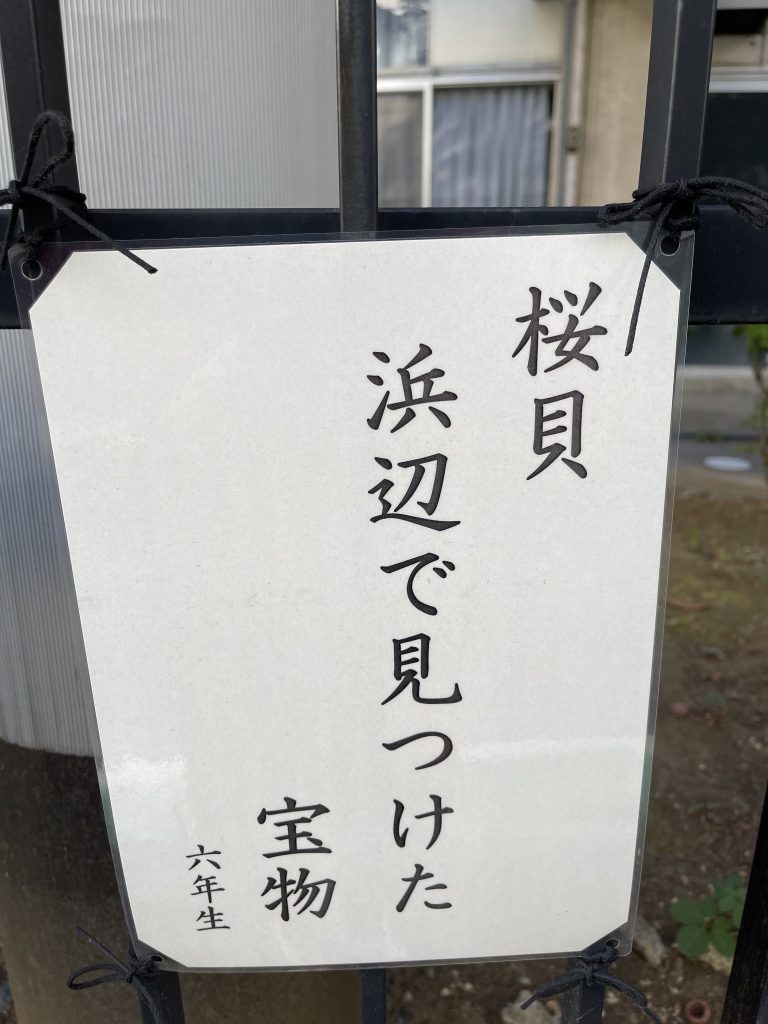 桜貝
浜辺で見つけた
宝物
六年生